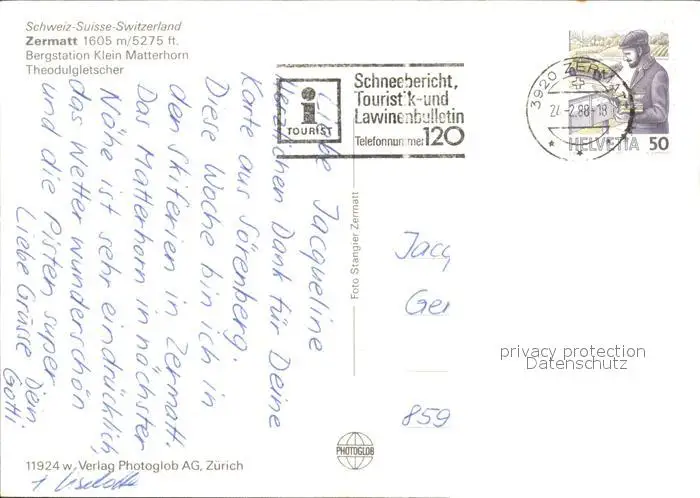 Schweiz-Suisse-Switzerland
Zermatt 1605 m/5275 ft.
Bergstation Klein Matterhorn
Theodulgletscher
i
TOURIST
Schneebericht,
Tourist'k-und
Lawinenbulletin
Telefonnummer 120
3920 ZERMATT
24.-2.88-18
HELVETIA 50
Liebe Jacqueline
Herzlichen Dank für Deine
Karte aus Sörenberg.
Diese Woche bin ich in
den Skiferien in Zermatt.
Das Matterhorn in nächster
Nähe ist sehr eindrücklich,
das Wetter wunderschön
und die Pisten super
Liebe Grüsse Dein
Gotti
Foto Stangier Zermatt
Jacq
Ger
859
privacy protection
Datenschutz
PHOTOGLOB
11924 w Verlag Photoglob AG, Zürich